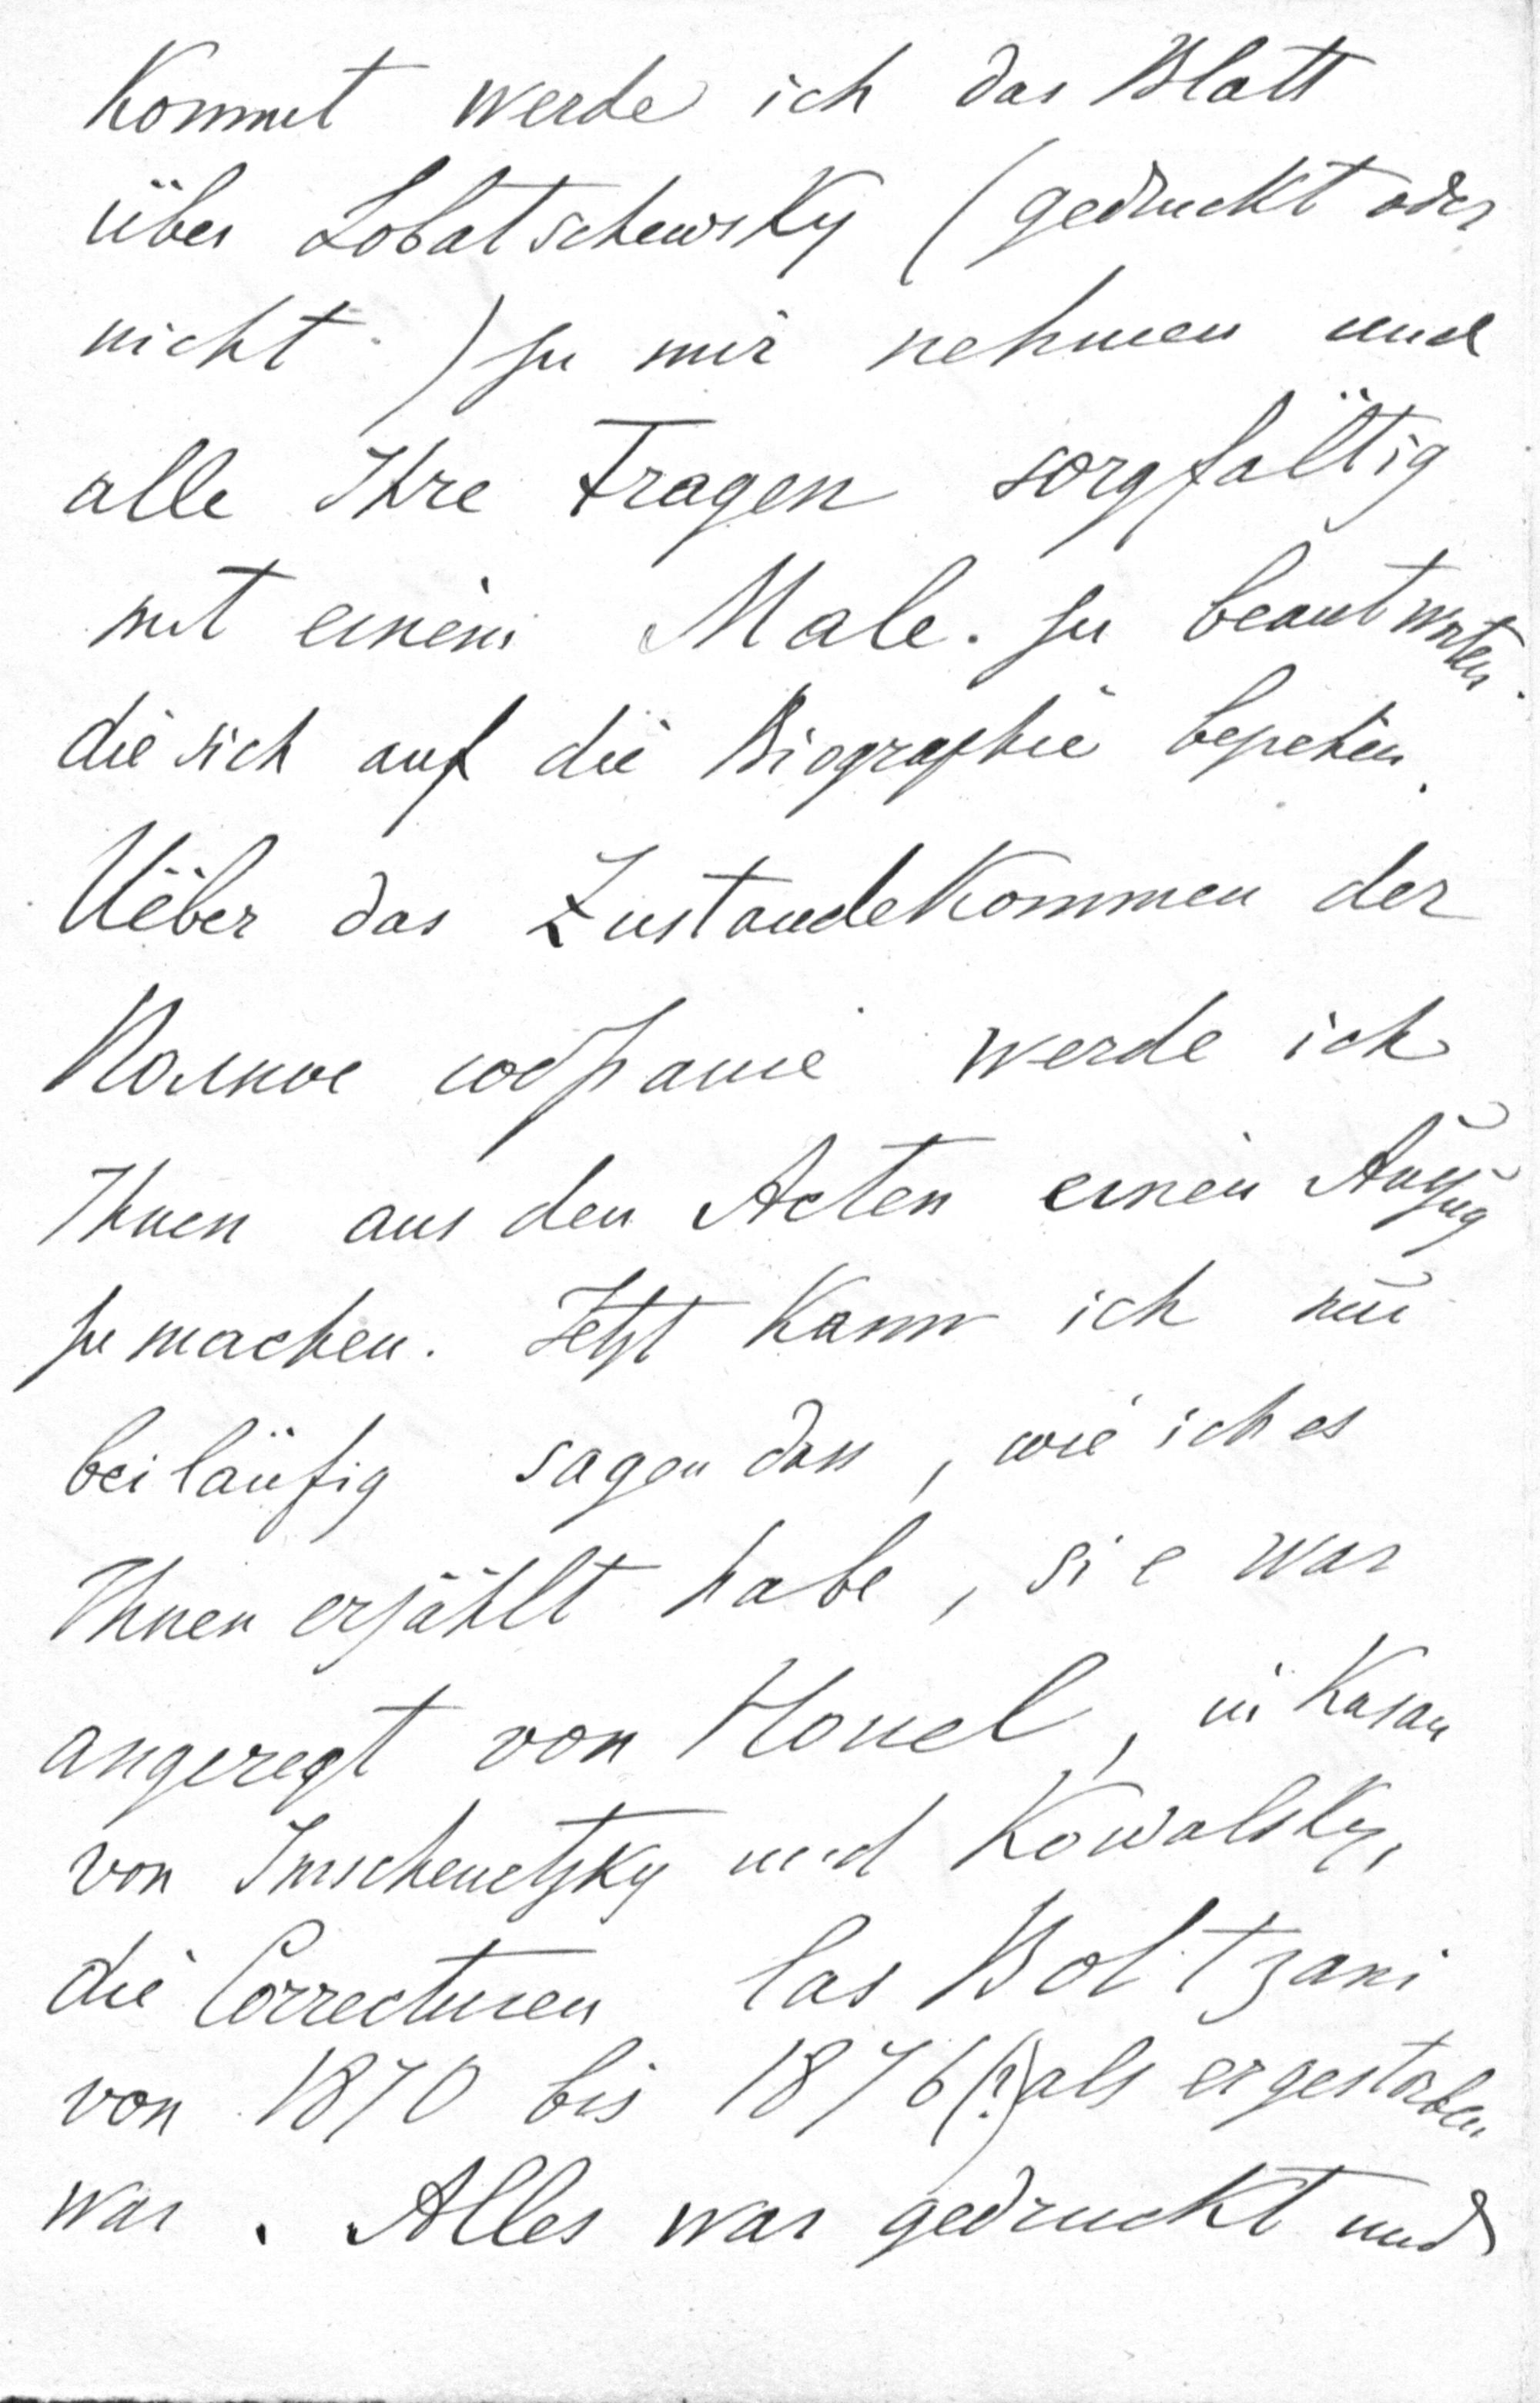 kommt werde ich das Blatt
über Lobatschewsky (gedruckt oder
nicht) zu mir nehmen und
alle Ihre Fragen sorgfältig
mit einem Male. zu beantworten.
die sich auf die Biographie beziehen.
Ueber das Zustandekommen der
Полное собраніе werde ich
Ihnen aus den Acten einen Auszug
zu machen. Jetzt kann ich nur
beiläufig sagen dass, wie ich es
Ihnen erzählt habe, sie war
angeregt von Houel, in Kasan
von Imschenetzky und Kowalsky,
die Correcturen las Boltzani
von 1870 bis 1876(?) als er gestorben
war. Alles war gedruckt und